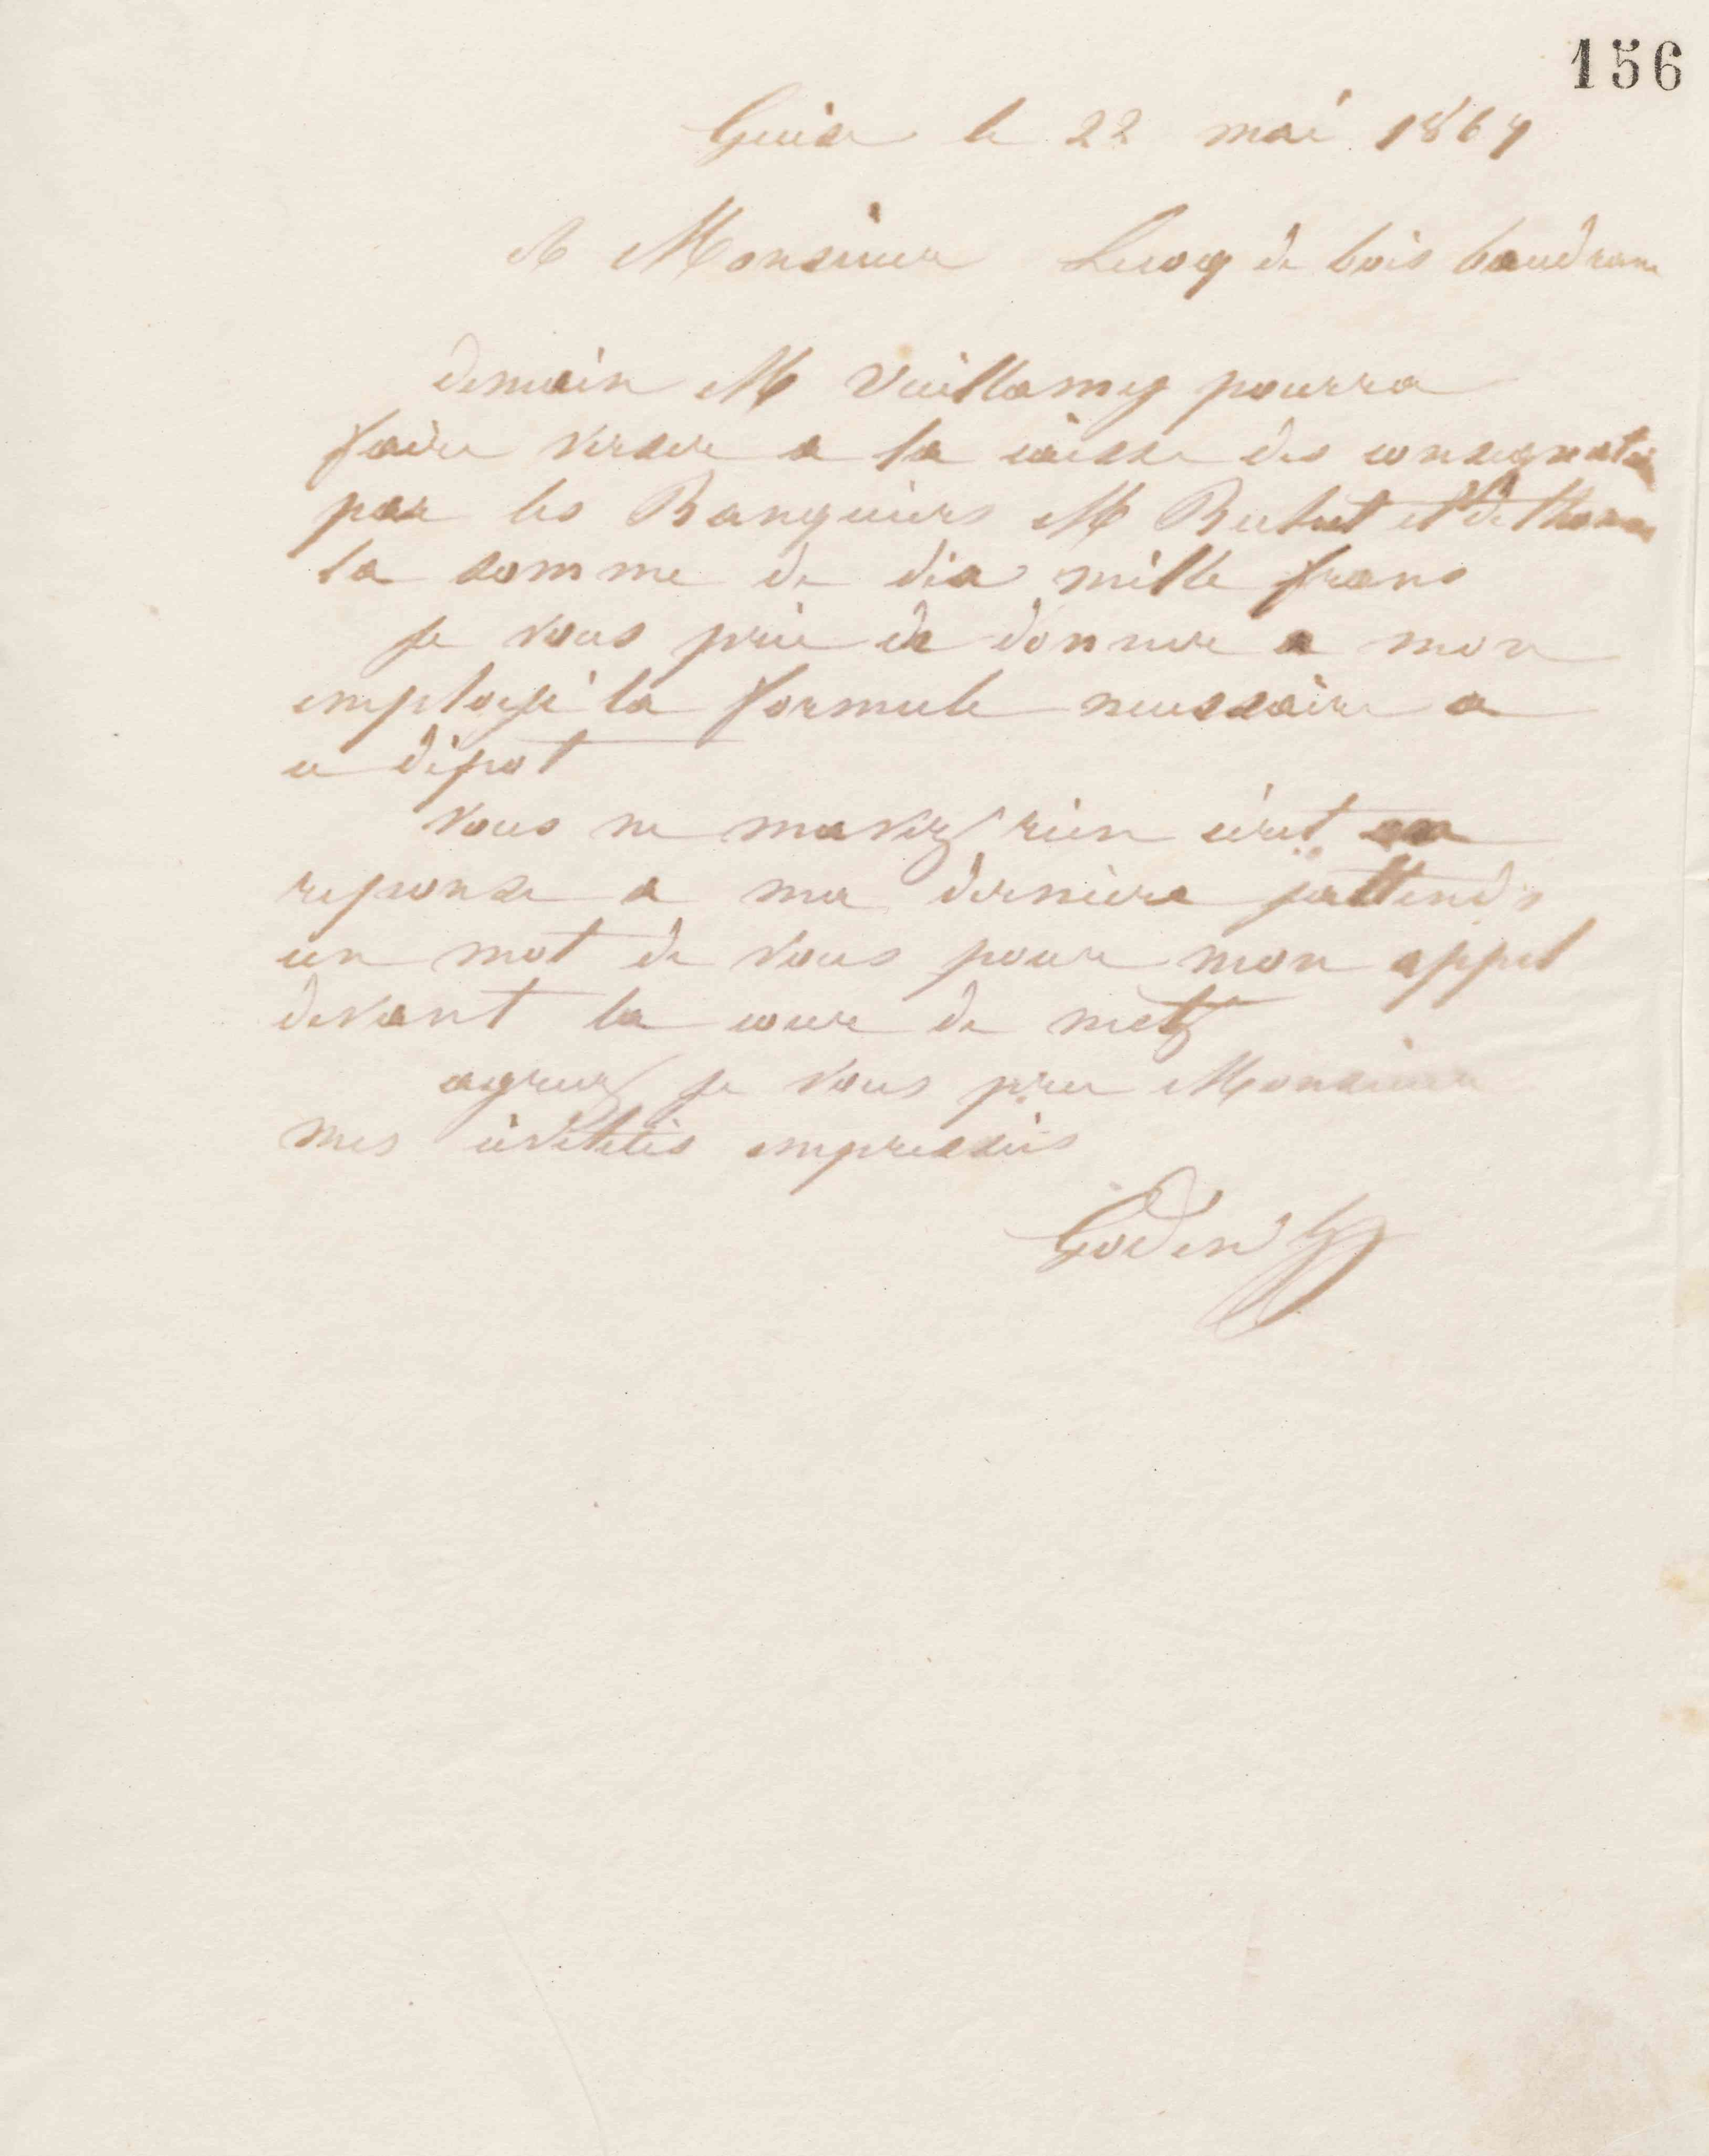 156
Guise le 22 mai 1864
A Monsieur Lecoq de bois baudran
demain M Vuillamy pourra
faire verser a la caisse des consignat
par les Banquiers M Bechet et dethom
la somme de dix mille francs
je vous prie de donner a mon
employé la formule necessaire a
ce dépot
vous ne mavez rien écrit en
reponse a ma derniere jattends
un mot de vous pour mon appel
devant la cour de metz
agreez je vous prie Monsieur
mes civilités empressées
Godin